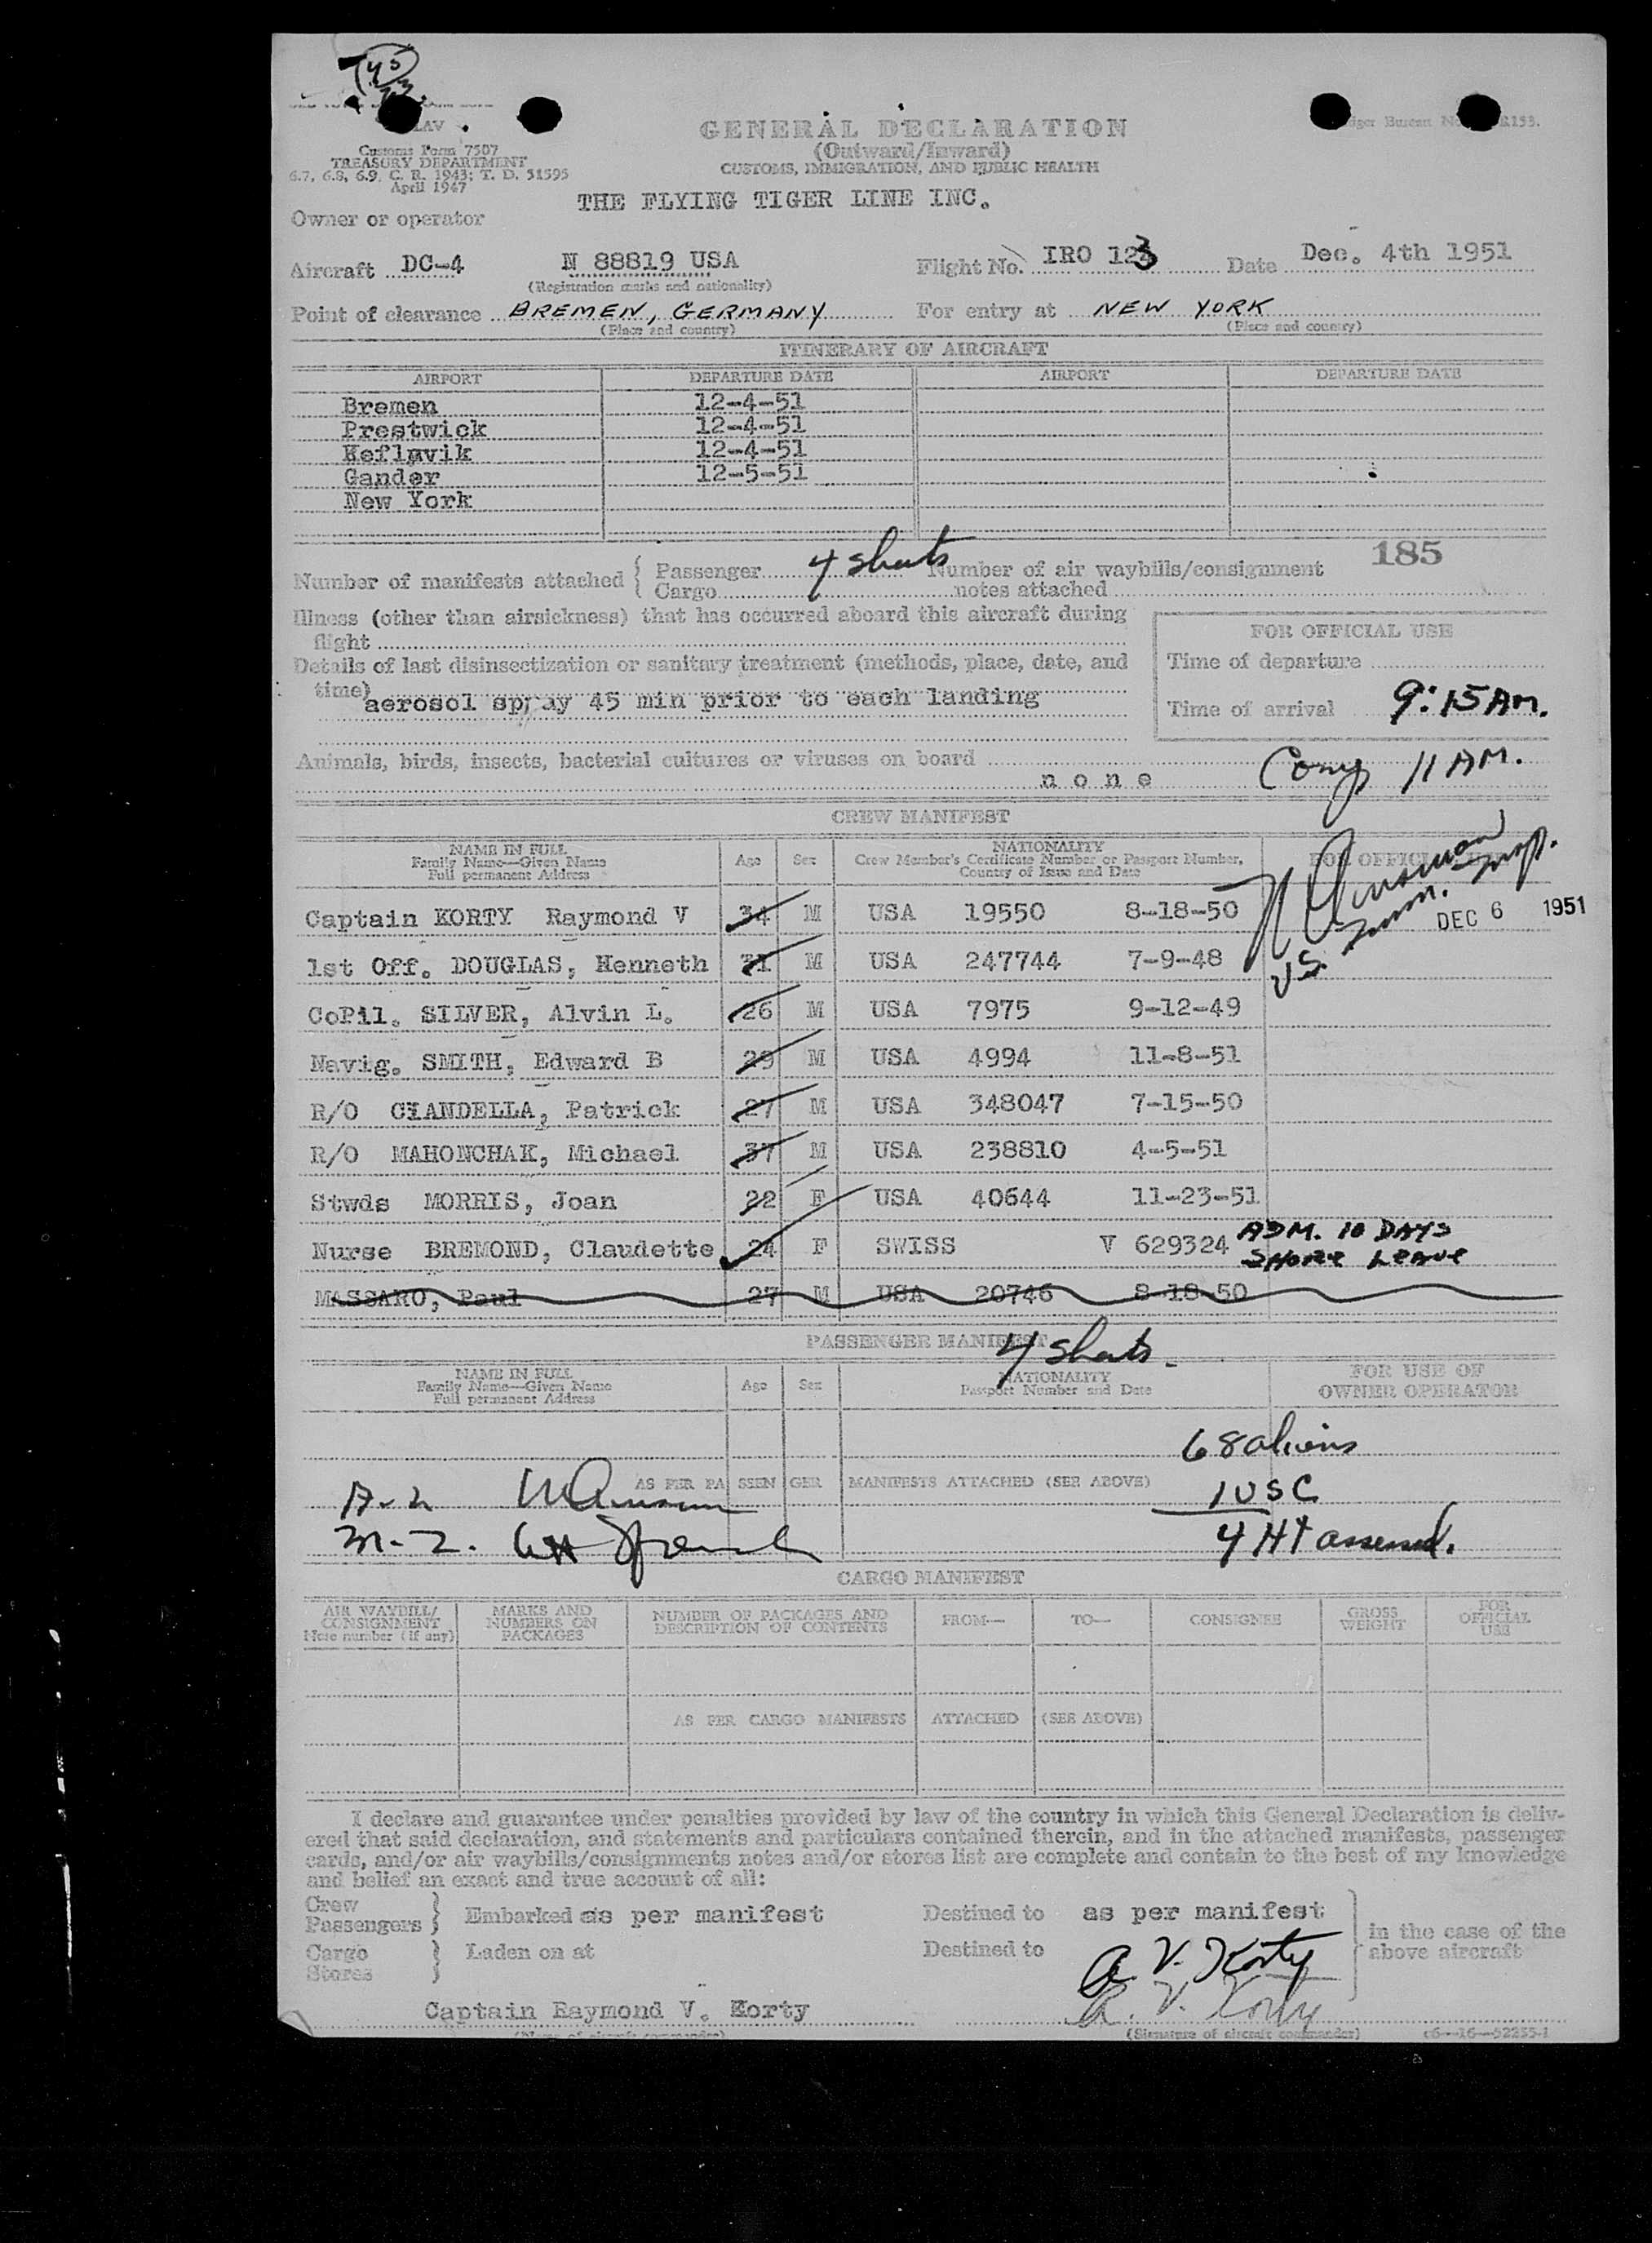 45
LAV
Customs Form 7507
TREASURY DEPARTMENT
6.7, 6.8, 6.9, C. R. 1943; T. D. 51595
April 1947
GENERAL DECLARATION
(Outward/Inward)
CUSTOMS, IMMIGRATION, AND PUBLIC HEALTH
Budget Bureau No. R133.
THE FLYING TIGER LINE INC.
Owner or operator
Aircraft DC-4 N 88819 USA Flight No. IRO 123 Date Dec. 4th 1951
(Registration marks and nationality)
Point of clearance BREMEN, GERMANY For entry at NEW YORK
(Place and country) (Place and country)
ITINERARY OF AIRCRAFT
AIRPORT DEPARTURE DATE AIRPORT DEPARTURE DATE
Bremen 12-4-51
Prestwick 12-4-51
Keflavik 12-4-51
Gander 12-5-51
New York
185
Number of manifests attached { Passenger 4 sheets Number of air waybills/consignment
Cargo notes attached
Illness (other than airsickness) that has occurred aboard this aircraft during
flight
FOR OFFICIAL USE
Details of last disinsectization or sanitary treatment (methods, place, date, and
time) aerosol spray 45 min prior to each landing
Time of departure
Time of arrival 9:15 AM.
Animals, birds, insects, bacterial cultures or viruses on board
none
11 AM.
CREW MANIFEST
NAME IN FULL
Family Name—Given Name
Full permanent Address
Age Sex
NATIONALITY
Crew Member's Certificate Number or Passport Number,
Country of Issue and Date
FOR OFFICIAL USE
U.S. Imm. Insp.
DEC 6 1951
Captain KORTY Raymond V 34 M USA 19550 8-18-50
1st Off. DOUGLAS, Kenneth 31 M USA 247744 7-9-48
CoPil. SILVER, Alvin L. 26 M USA 7975 9-12-49
Navig. SMITH, Edward B 29 M USA 4994 11-8-51
R/O CIANDELLA, Patrick 27 M USA 348047 7-15-50
R/O MAHONCHAK, Michael 37 M USA 238810 4-5-51
Stwds MORRIS, Joan 22 F USA 40644 11-23-51
Nurse BREMOND, Claudette 24 F SWISS V 629324 ADM. 10 DAYS
SHORE LEAVE
MASSARO, Paul 27 M USA 20746 8-18-50
PASSENGER MANIFEST
4 sheets.
NAME IN FULL
Family Name—Given Name
Full permanent Address
Age Sex
NATIONALITY
Passport Number and Date
FOR USE OF
OWNER OPERATOR
68 aliens
AS PER PASSENGER MANIFESTS ATTACHED (SEE ABOVE)
A-2
1 USC
M-2.
4 HT assessed.
CARGO MANIFEST
AIR WAYBILL/
CONSIGNMENT
Note number (if any)
MARKS AND
NUMBERS ON
PACKAGES
NUMBER OF PACKAGES AND
DESCRIPTION OF CONTENTS
FROM—
TO—
CONSIGNEE
GROSS
WEIGHT
FOR
OFFICIAL
USE
AS PER CARGO MANIFESTS ATTACHED (SEE ABOVE)
I declare and guarantee under penalties provided by law of the country in which this General Declaration is deliv-
ered that said declaration, and statements and particulars contained therein, and in the attached manifests, passenger
cards, and/or air waybills/consignments notes and/or stores list are complete and contain to the best of my knowledge
and belief an exact and true account of all:
Crew
Passengers } Embarked as per manifest Destined to as per manifest
Cargo
Stores } Laden on at Destined to
in the case of the
above aircraft
R. V. Korty
R. V. Korty
Captain Raymond V. Korty
(Name of aircraft commander) (Signature of aircraft commander) c6—16—52235-1